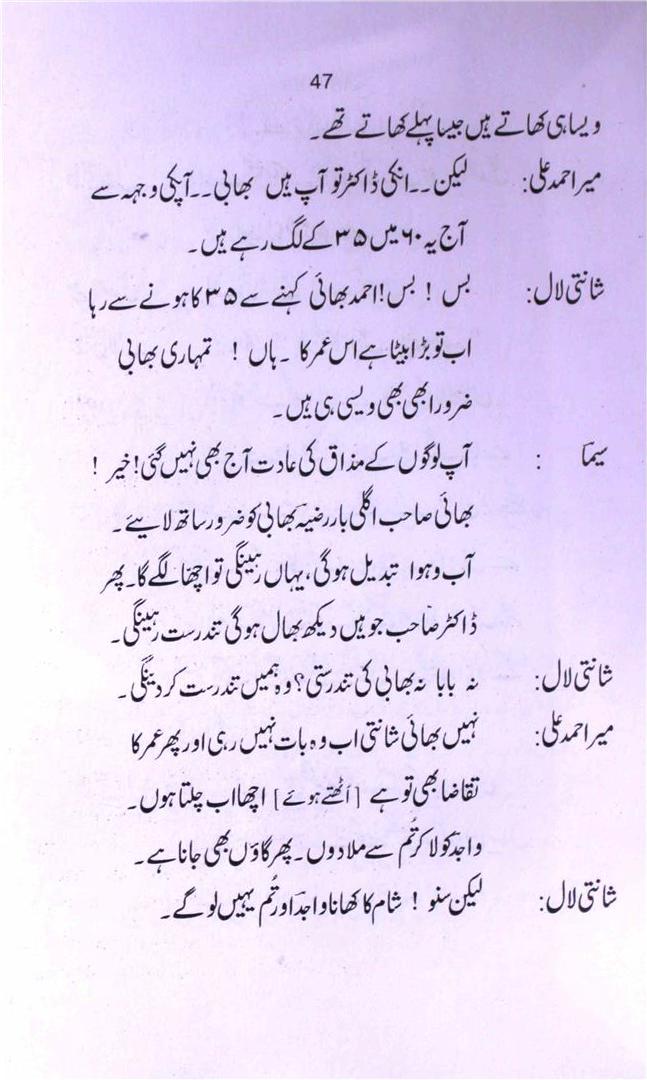 47
ویسا ہی کھاتے ہیں جیسا پہلے کھاتے تھے۔
میر احمد علی: لیکن۔۔انکی ڈاکٹر تو آپ ہیں بھابی۔۔آپکی وجہہ سے
آج یہ ۶۰ میں ۳۵ کے لگ رہے ہیں۔
شانتی لال: بس ! بس! احمد بھائی کہنے سے ۳۵ کا ہونے سے رہا
اب تو بڑا بیٹا ہے اس عمر کا ۔ ہاں ! تمہاری بھابی
ضرور ابھی بھی ویسی ہی ہیں۔
سیما : آپ لوگوں کے مذاق کی عادت آج بھی نہیں گئی! خیر !
بھائی صاحب اگلی بار رضیہ بھابی کو ضرور ساتھ لایئے۔
آب و ہوا تبدیل ہوگی، یہاں رہینگی تو اچھا لگے گا۔ پھر
ڈاکٹر صاحب جو ہیں دیکھ بھال ہوگی تندرست رہینگی۔
شانتی لال: نہ بابا نہ بھابی کی تندرستی؟ وہ ہمیں تندرست کر دینگی۔
میر احمد علی: نہیں بھائی شانتی اب وہ بات نہیں رہی اور پھر عمر کا
تقاضا بھی تو ہے [اُٹھتے ہوئے] اچھا اب چلتا ہوں۔
واجد کو لا کر تُم سے ملا دوں۔ پھر گاؤں بھی جانا ہے۔
شانتی لال: لیکن سنو ! شام کا کھانا واجد اور تُم یہیں لو گے۔